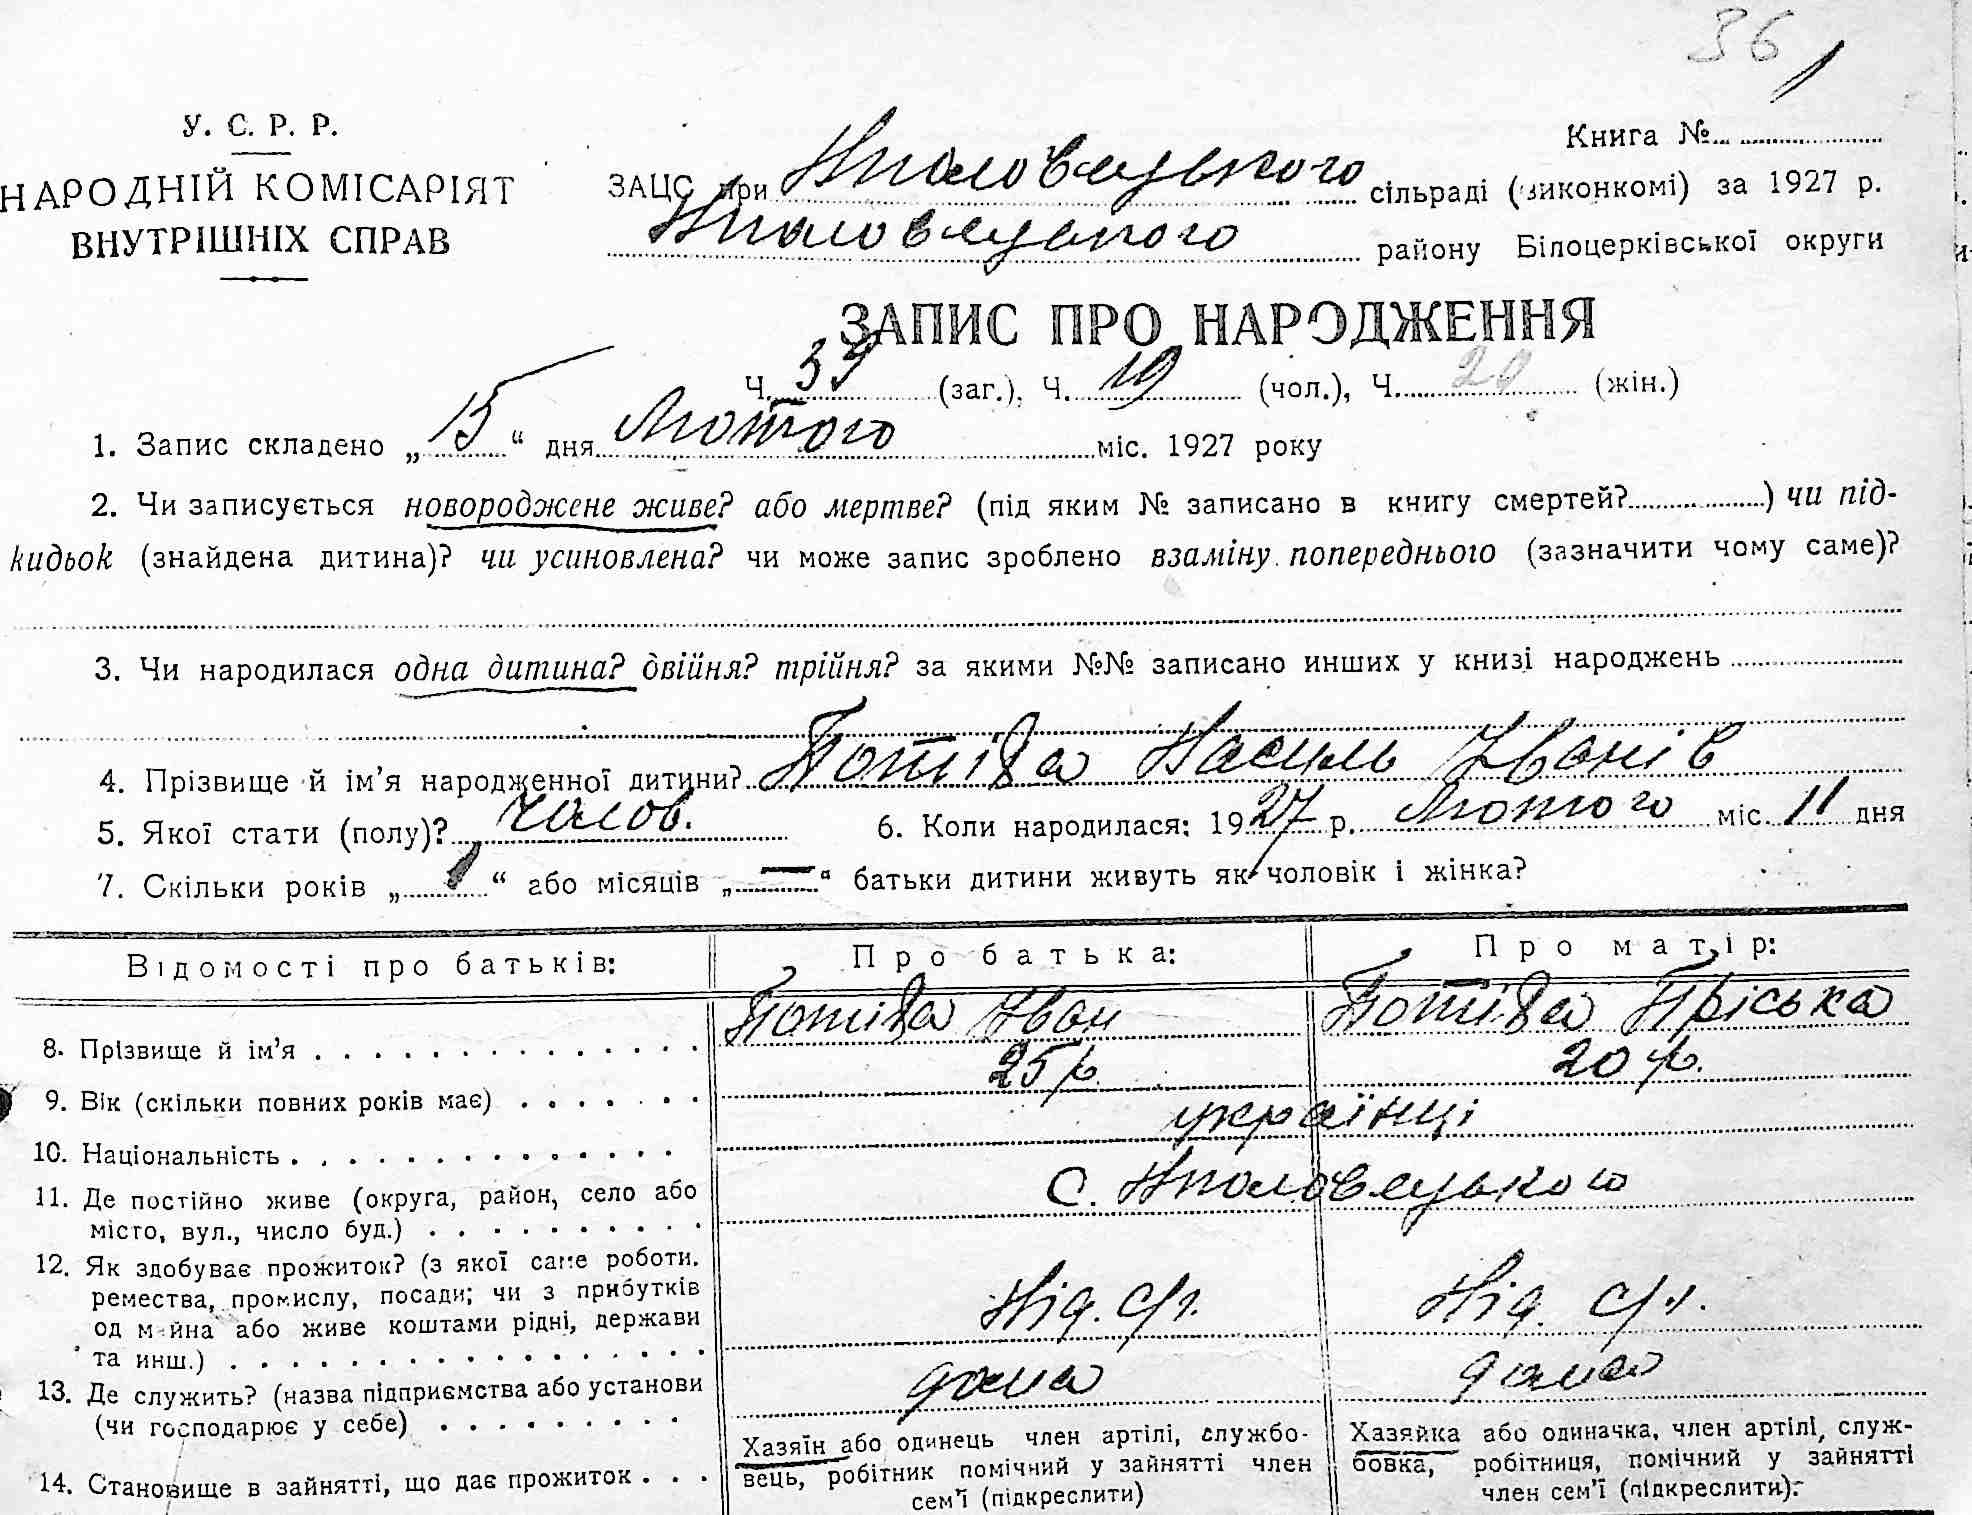 36
У. С. Р. Р.
НАРОДНІЙ КОМІСАРІЯТ
ВНУТРІШНІХ СПРАВ
Книга №
ЗАЦС при Вполовецького сільраді (виконкомі) за 1927 р.
Вполовецького району Білоцерківської округи
ЗАПИС ПРО НАРОДЖЕННЯ
Ч. 39 (заг.), Ч. 19 (чол.), Ч. 20 (жін.)
1. Запис складено „15“ дня Лютого міс. 1927 року
2. Чи записується новороджене живе? або мертве? (під яким № записано в книгу смертей?) чи під-
кидьок (знайдена дитина)? чи усиновлена? чи може запис зроблено взаміну попереднього (зазначити чому саме)?
3. Чи народилася одна дитина? двійня? трійня? за якими №№ записано инших у книзі народжень
4. Прізвище й ім’я народженної дитини? Потіва Василь Іванів
5. Якої стати (полу)? чолов. 6. Коли народилася: 1927 р. Лютого міс. 11 дня
7. Скільки років „1“ або місяців „—“ батьки дитини живуть як чоловік і жінка?
Відомості про батьків: Про батька: Про матір:
8. Прізвище й ім’я Потіва Іван Потіва Пріська
9. Вік (скільки повних років має) 25 р. 20 р.
10. Національність українці
11. Де постійно живе (округа, район, село або
місто, вул., число буд.) С. Вполовецького
12. Як здобуває прожиток? (з якої саме роботи.
ремества, промислу, посади; чи з прибутків
од майна або живе коштами рідні, держави
та инш.) Від. с/г. Від. с/г.
13. Де служить? (назва підприємства або установи
(чи господарює у себе) дома дома
14. Становище в зайнятті, що дає прожиток
Хазяїн або одинець член артілі, службо-
вець, робітник помічний у зайнятті член
сем’ї (підкреслити)
Хазяйка або одиначка, член артілі, служ-
бовка, робітниця, помічний у зайнятті
член сем’ї (підкреслити).